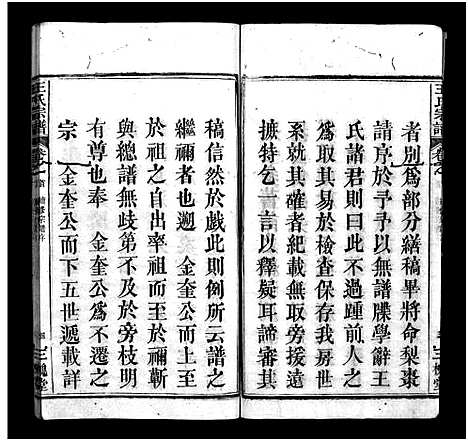 王氏宗譜
者別為部分繕稿畢將命梨棗
請序於予予以無譜牒學辭王
氏諸君則曰不過踵前人之
為取其易於檢查保存我房世
系就其確者紀載無取旁搜遠
摭特乞一言以釋疑耳諦審其
稿信然於戲此則例所云譜之
繼禰者也遡 金奎公而上至
於祖之自出率祖而至於禰蘄
與總譜無歧第不及於旁枝明
有尊也奉 金奎公為不遷之
宗 金奎公而下五世遞載詳
王氏宗譜